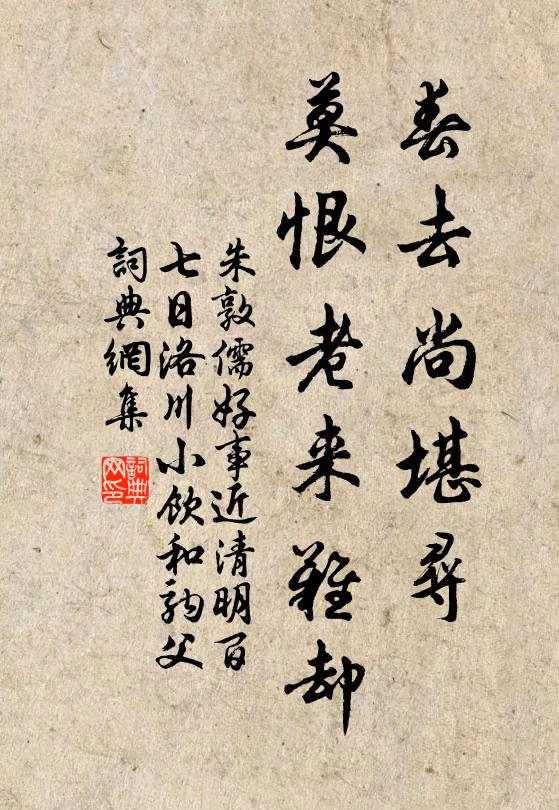 春去尚堪尋
莫恨老来難却
朱敦儒好事近清明百
七日洛川小飲和駒父
詞典網集
詞典
网印